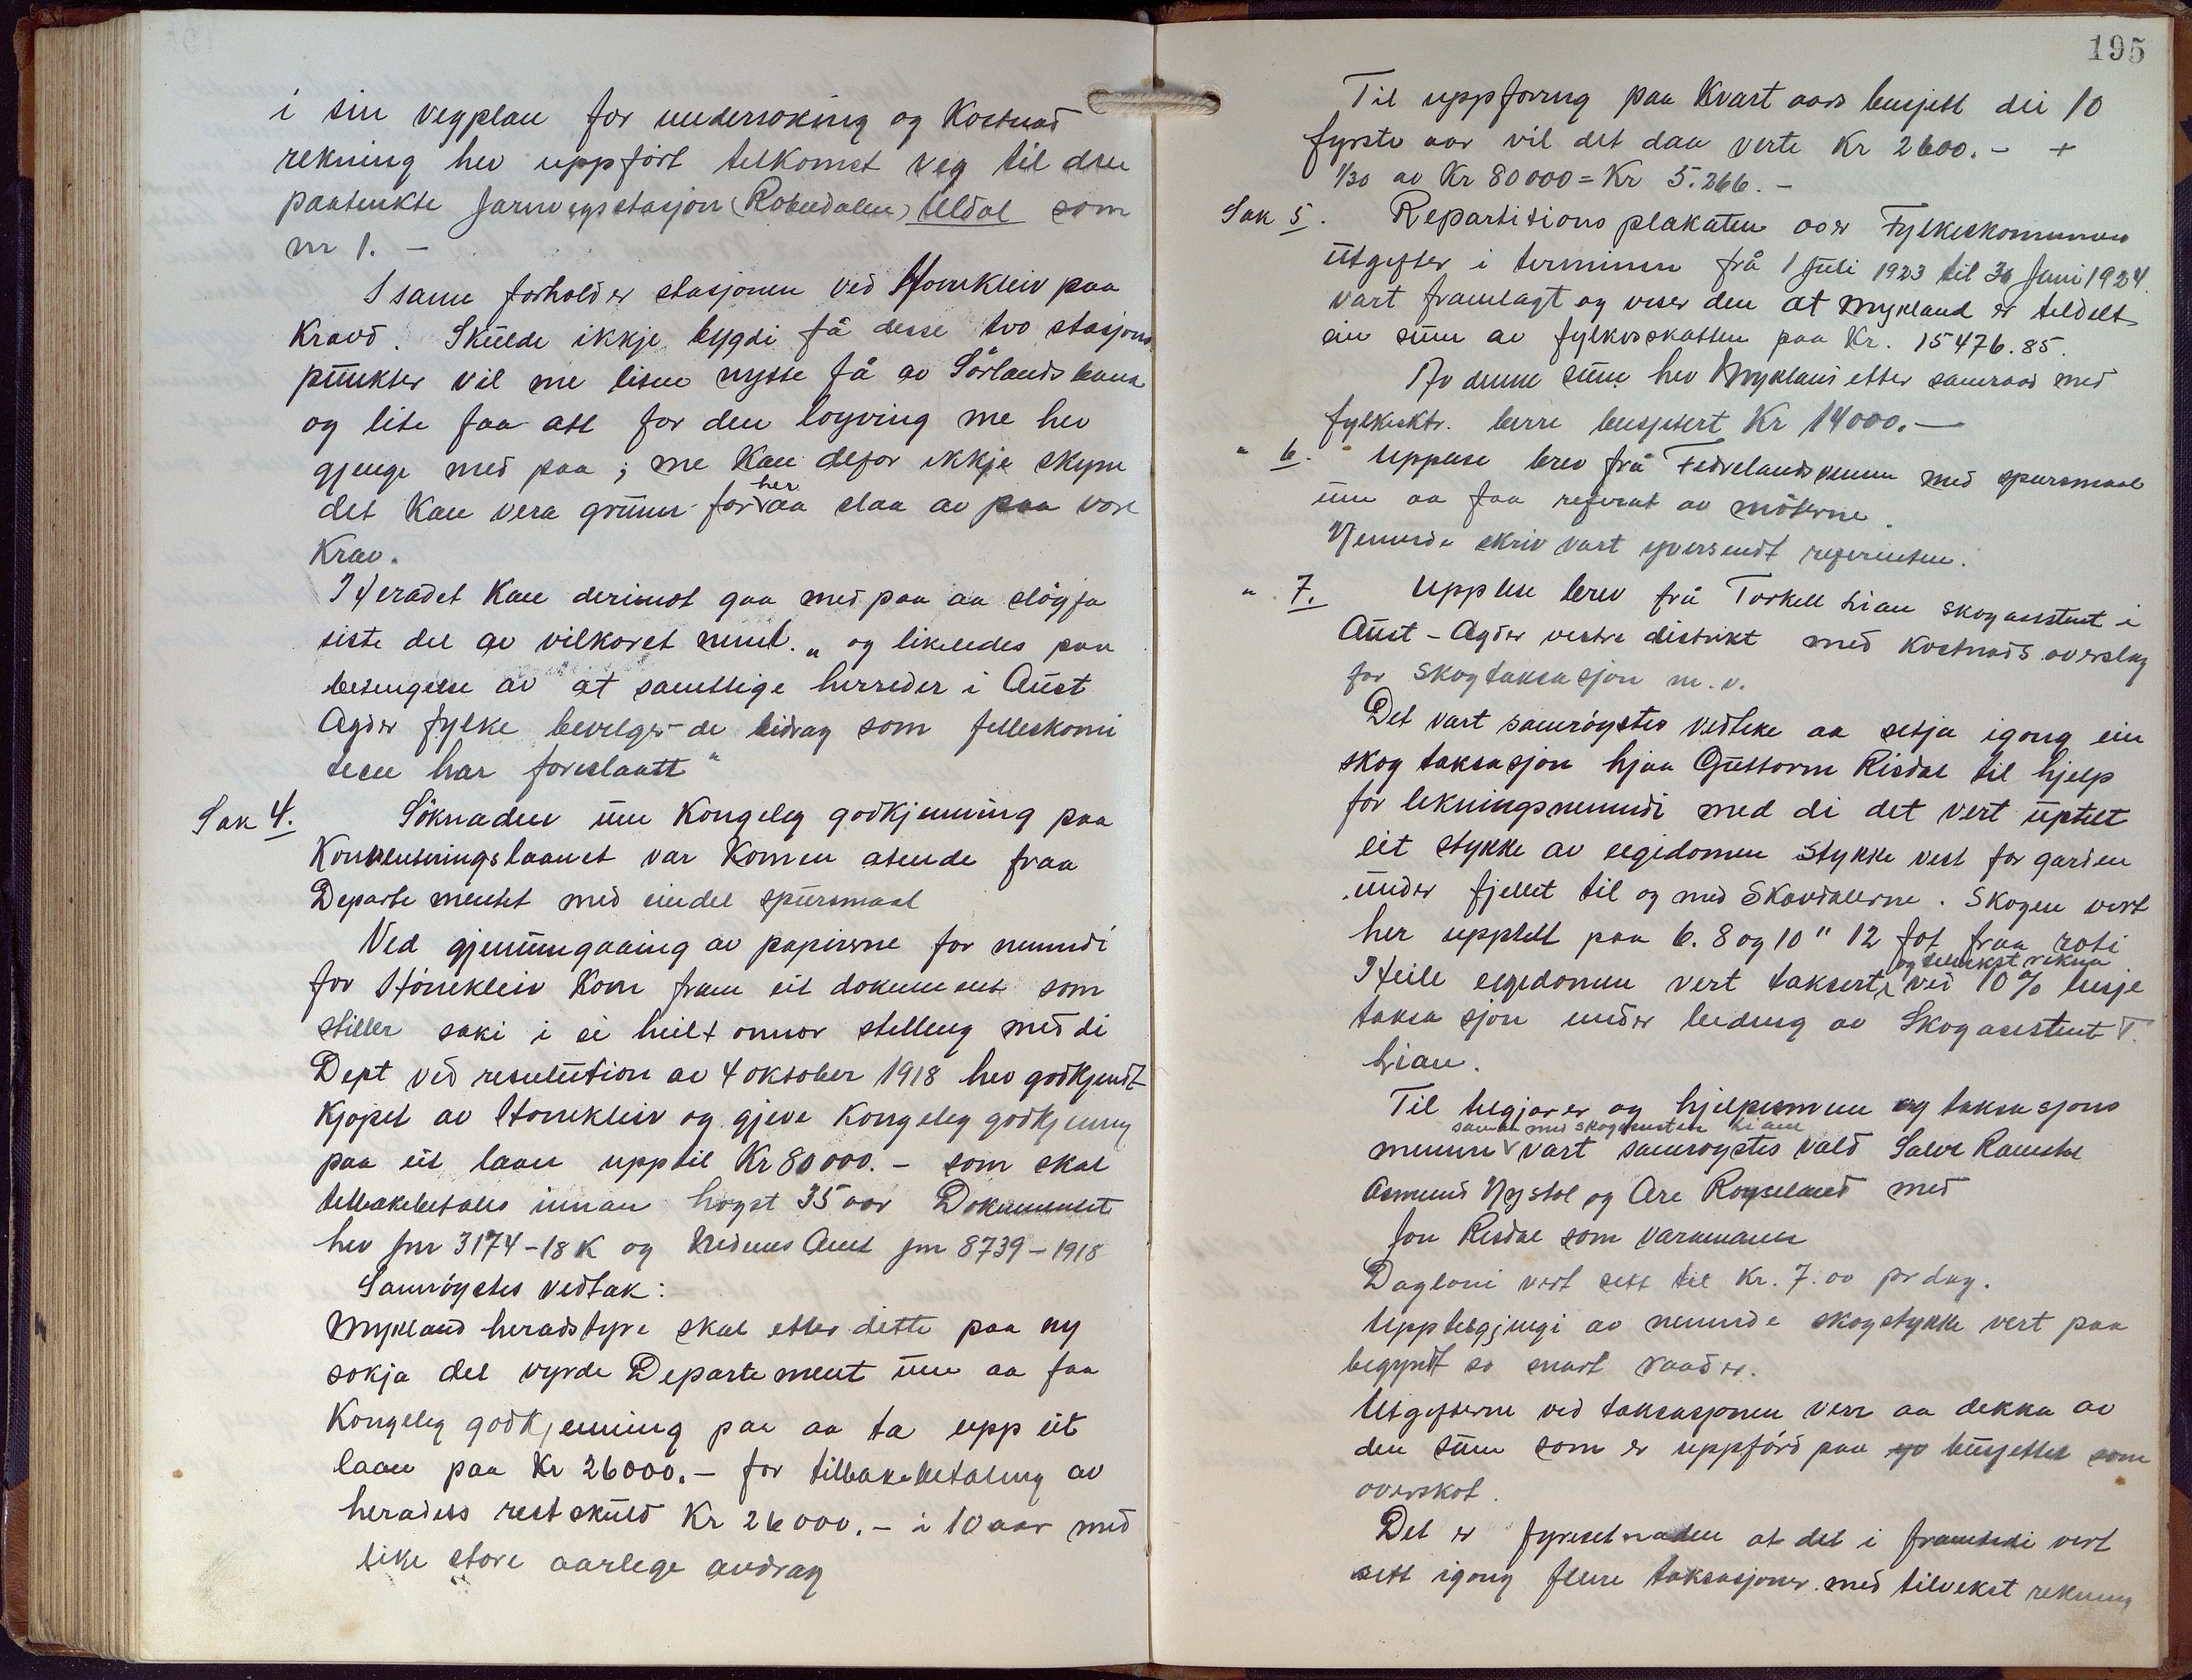 i sin vegplan for undersøking og Kostnad
rekning hev uppført tilkomst veg til den
paatenkte jarnvegsstasjon (Robudalen) Uldal som
nr 1. —
I same forhold er stasjonen ved Homkleiv paa
Kravd. Skulde ikkje bygdi få desse tvo stasjons
punkter vil me liten nytte få av Sörlandsbana
og lite faa att for den løyving me hev
gjenge med paa; me Kan defor ikkje skyna
det Kan vera grunn for her aa slaa av paa vore
Krav.
Heradet Kan derimot gaa med paa aa sløyfa
siste del av vilkoret nemleg „og likeledes paa
betingelse av at samtlige herreder i Aust
Agder fylke bevilger de bidrag som felleskomi
teen har foreslaatt“
Sak 4. Söknaden um Kongeleg godkjenning paa
Konverteringslaanet var Komen atende fraa
Departementet med eindel spursmaal
Ved gjenumgaaing av papirerne for nemndi
for Homkleiv Kom fram eit dokument som
stiller saki i ei heilt onnor stelling med di
Dept ved resulution av 4 oktober 1918 hev godkjendt
Kjøpet av Homkleiv og gjeve Kongeleg godkjenning
paa eit laan upptil Kr 80000.- som skal
tilbakebetales innan høgst 35 aar Dokumentet
hev jnr 3174-18 K og Nedenes Amt jnr 8739-1918
Samröystes vedtak:
Mykland heradstyre skal etter dette paa ny
søkja det vyrde Departement um aa faa
Kongeleg godkjenning paa aa ta upp eit
laan paa Kr 26000.- for tilbakebetaling av
heradets restskuld Kr 26000.- i 10 aar med
like store aarlege avdrag
195
Til uppføring paa Kvart aars busjett dei 10
fyrste aar vil det daa verte Kr 2600.- +
1/30 av Kr 80000 = Kr 5.266.-
Sak 5. Repartitions plakaten over Fylkeskommunens
utgifter i terminen frå 1 Juli 1923 til 30 Juni 1924
vart framlagt og viser den at Mykland er tildelt
ein sum av fylkesskatten paa Kr. 15476.85.
Av denne sum hev Mykland etter samraad med
fylkesktr. berre busjetert Kr 14000.—
" 6. Upplese brev frå Fedrelandsvennen med spursmaal
um aa faa referat av møterne.
Nemnde skriv vart yversendt referenten.
" 7. Upplese brev frå Torkell Lian skogassistent i
Aust-Agder vestre distrikt med Kostnads overslag
for skogtaksasjon m.v.
Det vart samröystes vedteke aa setja igong ein
skog taksasjon hjaa Guttorm Risdal til hjelp
for likningsnemndi med di det vert uptelt
eit stykke av eigedomen stykke vest for garden
under fjellet til og med Skardalerne. Skogen vert
her upptelt paa 6. 8 og 10" 12 fot fraa roti
Heile eigedomen vert taksert og tilvekst rekna ved 10% linje
taksasjon under leiding av Skogassistent T.
Lian.
Til telgjarer og hjelpesmenn og taksasjons
menner saman med skogassistent Lian vart samrøystes vald Salve Ramstal
Asmund Nystøl og Are Røyseland med
Jon Risdal som varamann
Dagløni vert sett til Kr. 7.00 pr dag.
Upptelgjingi av nemnde skogstykke vert paa
begyndt so snart raad er.
Utgifterne ved taksasjonen verr aa dekka av
den sum som er uppførd paa busjettet som
overskot.
Det er fyresetnaden at det i framtidi vert
sett igong fleire taksasjoner med tilvekst rekning